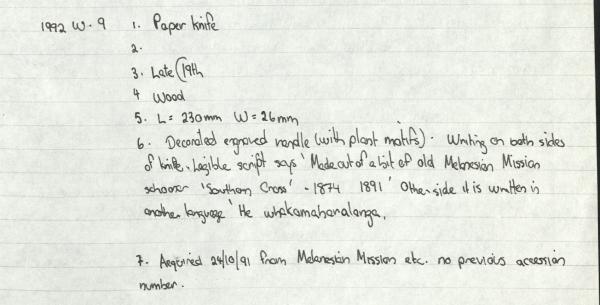 1992 W.9 1. Paper knife
2.
3. Late (19th
4 Wood
5. L = 230mm W = 26mm
6. Decorated engraved handle (with plant motifs). Writing on both sides
of knife. Legible script says 'Made out of a bit of old Melanesian Mission
schooner 'Southern Cross' - 1874 1891' Other side it is written in
another language 'He whakamaharatanga,
7. Acquired 24/10/91 from Melanesian Mission etc. no previous accession
number.